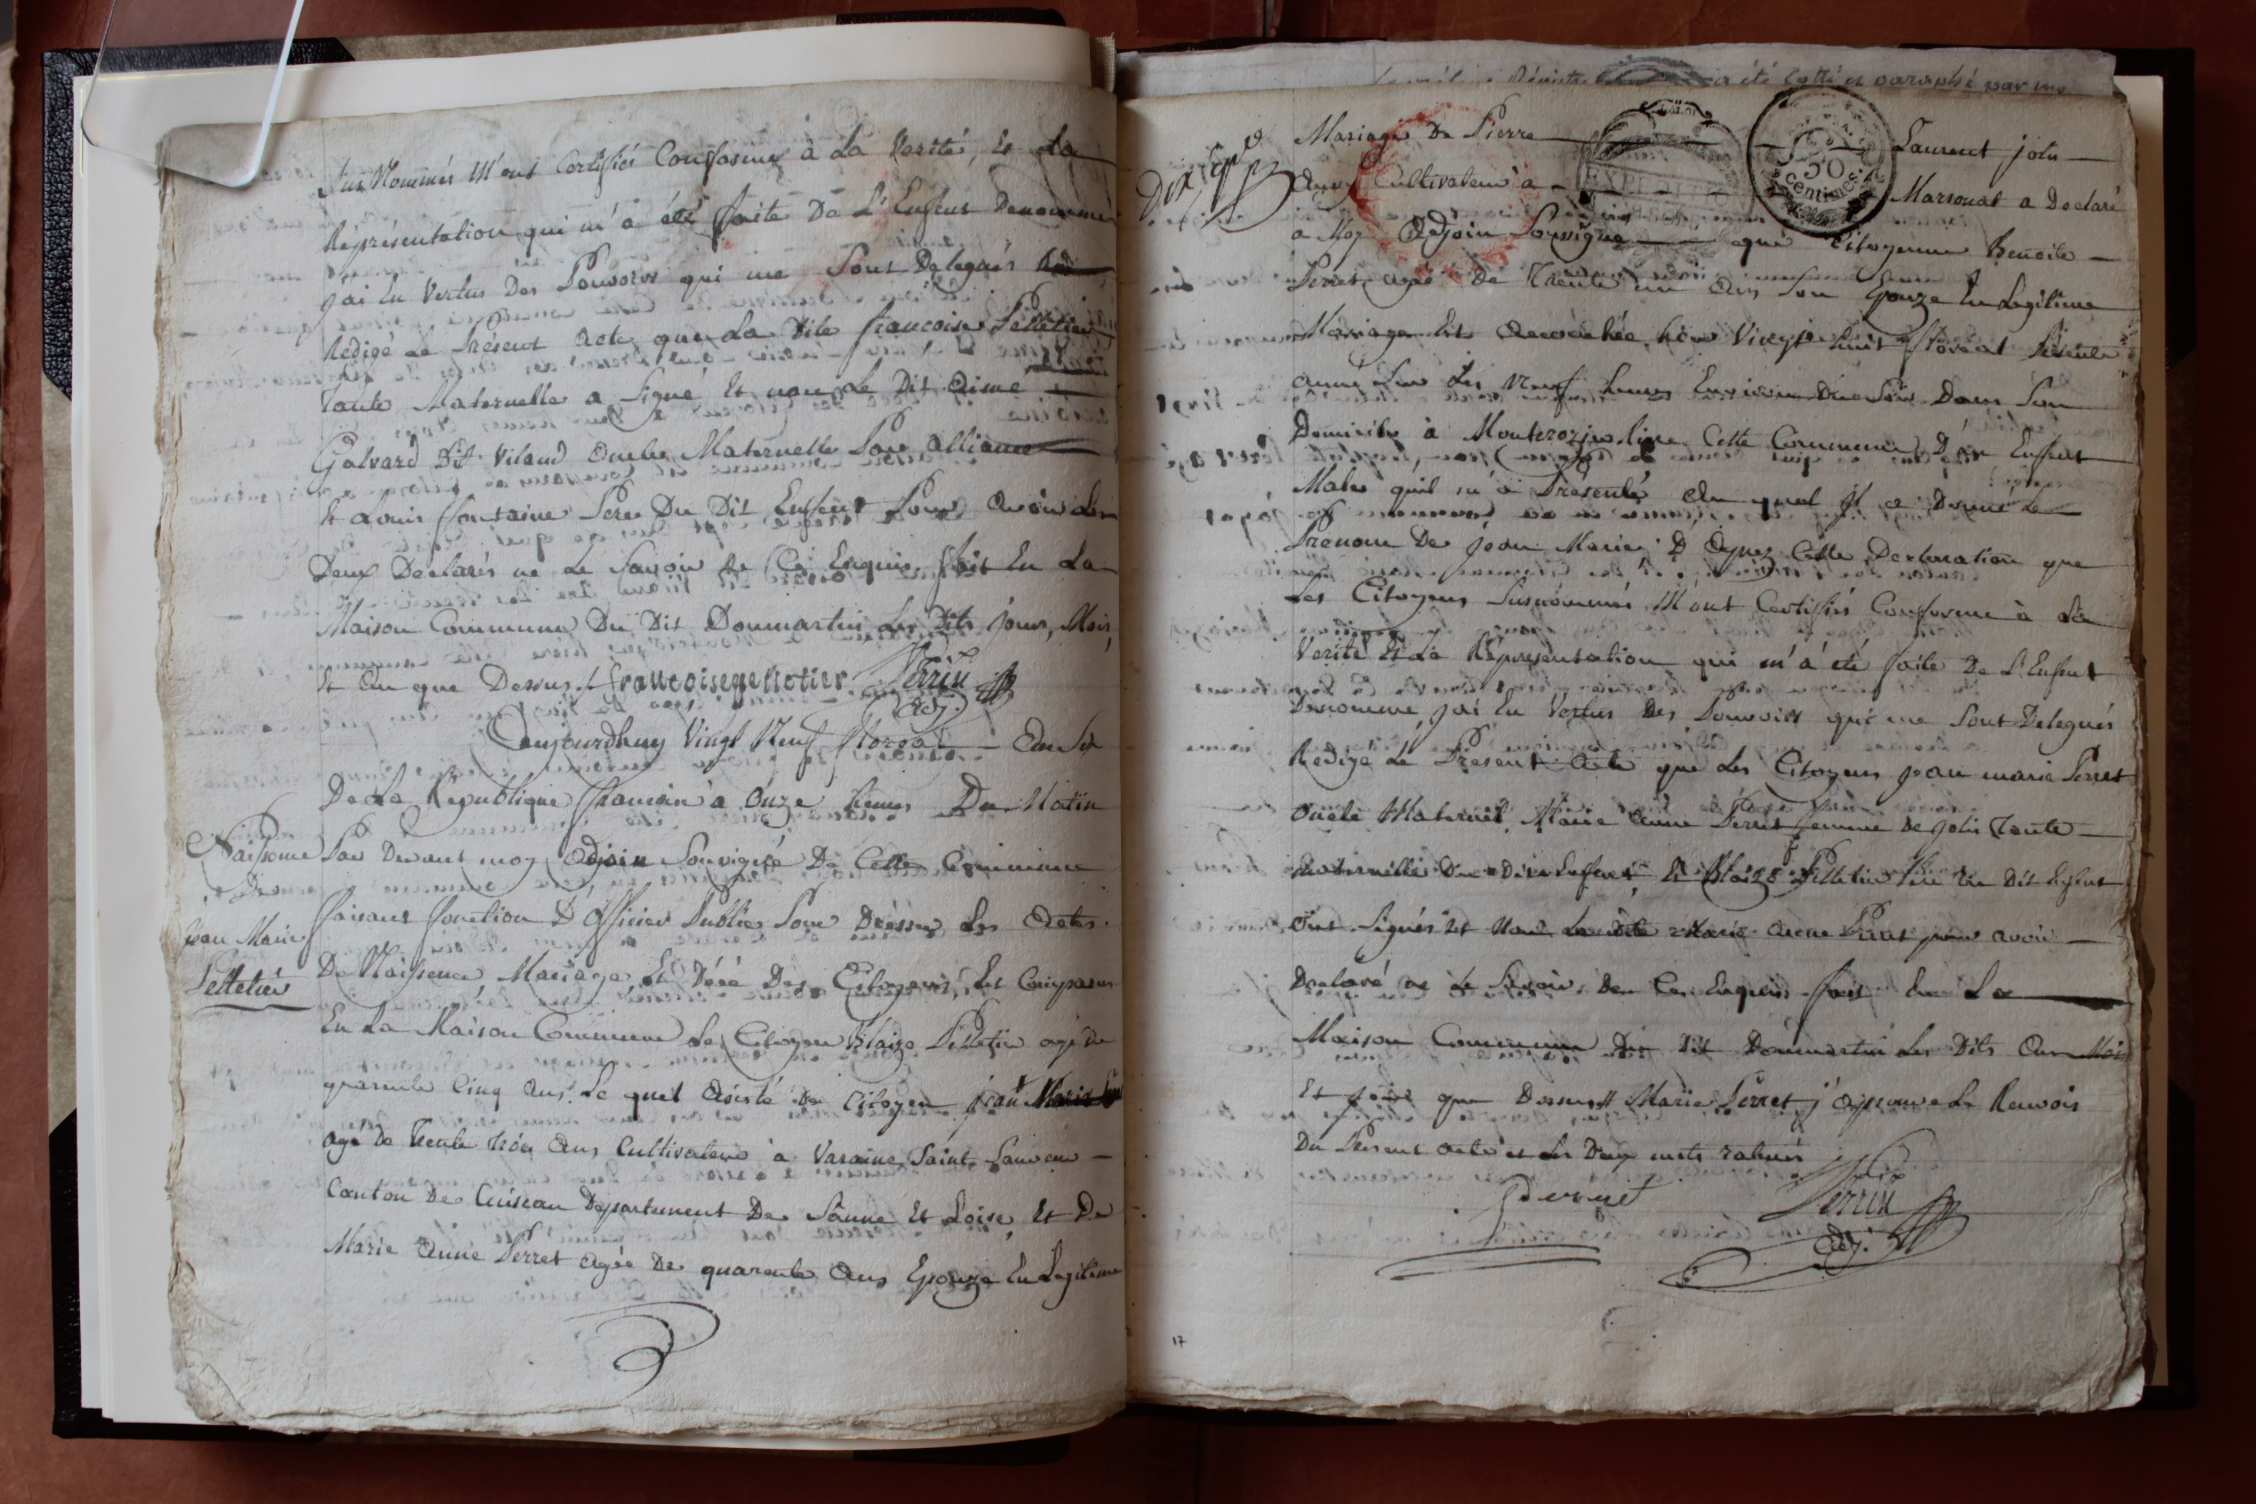 Sus Nommés M'ont Certifiés Conforme à La Verité, Et La
Réprésentation qui m'a été faite De L'Enfent Denommé
j'ai En Vertus Des Pouvoirs qui me Sont Delegués
Rédigé Le Présent Acte que La Dite francoise Pelletier
Tante Maternelle a Signé Et non Le Dit Aimé
Galvard Dit Viland Oncle Maternelle Par alliance
fontaine Pere Du Dit Enfent Pour Avoir Les
Deux Declarés ne Le Savoir De Ce Enquis fait En La
Maison Commune Du Dit Dommartin Les Dits jour, Mois,
Et An que Dessus francoise pelletier Perrin
Adj.
Aujourdhuy Vingt Neuf floreal An Six
De La Republique francoise à Onze heures Du Matin
Naissance
De
Jean Marie
Pelletier
Par Devant moy Adjoin Souvigné De Cette Commune
faisant fonction D'Officier Public Pour Dresser Les Actes
De Naissence Mariage Et Décé Des Citoyens, Est Comparus
En La Maison Commune Le Citoyen Blaize Pelletier agé De
quarente Cinq Ans Le quel Asisté Du Citoyen jean Marie
agé De Trente trois Ans Cultivateur à Varaine Saint Sauveur
Canton De Cuiseau Departement De Sâone Et Loire, Et De
Marie Anne Perret Agée De quarente Ans Epouze En Legitime
a été Cotté et paraphé par
Dix sept
Mariage De Pierre Laurent joly
Cultivateur à Marsonat a Declaré
50
centimes
a Moy Adjoin Souvigné que Citoyenne Benoite
Perret agée De Trente un Ans Son Epouze En Legitime
Mariage Est Accouchée hier Vingt huit floreal Présente
année Sur Les Neuf heures Environ Du Soir Dans Son
Domicile à Montcrozier Cette Commune D'un Enfent
Male qu'il m'a Présenté Au quel Il a Donné Le
Prenom De Jean Marie D'Apres Cette Declaration que
Les Citoyens Susnommés M'ont Certifiés Conforme à La
Verité Et La Répresentation qui m'a été faite De L'Enfent
Denommé, j'ai En Vertus Des Pouvoirs qui me Sont Delegués
Redigé Le Présent Acte que Les Citoyens jean marie Perret
Oncle Maternel, Marie Anne Perret femme De joly Tante
Maternelle Du Dit Enfent, Et Blaize Pelletier Pere Du Dit Enfent
Ont Signés Et Non La Dite Marie Anne Perret pour avoir
Declaré ne Le Savoir De Ce Enquis fait En La
Maison Commune Du Dit Dommartin Les Dits An Mois
Et jour que Dessus Marie Perret j'approuve Le Renvois
Du Present acte et Les Deux mots raturés
Perret Perrin
Adj.
17